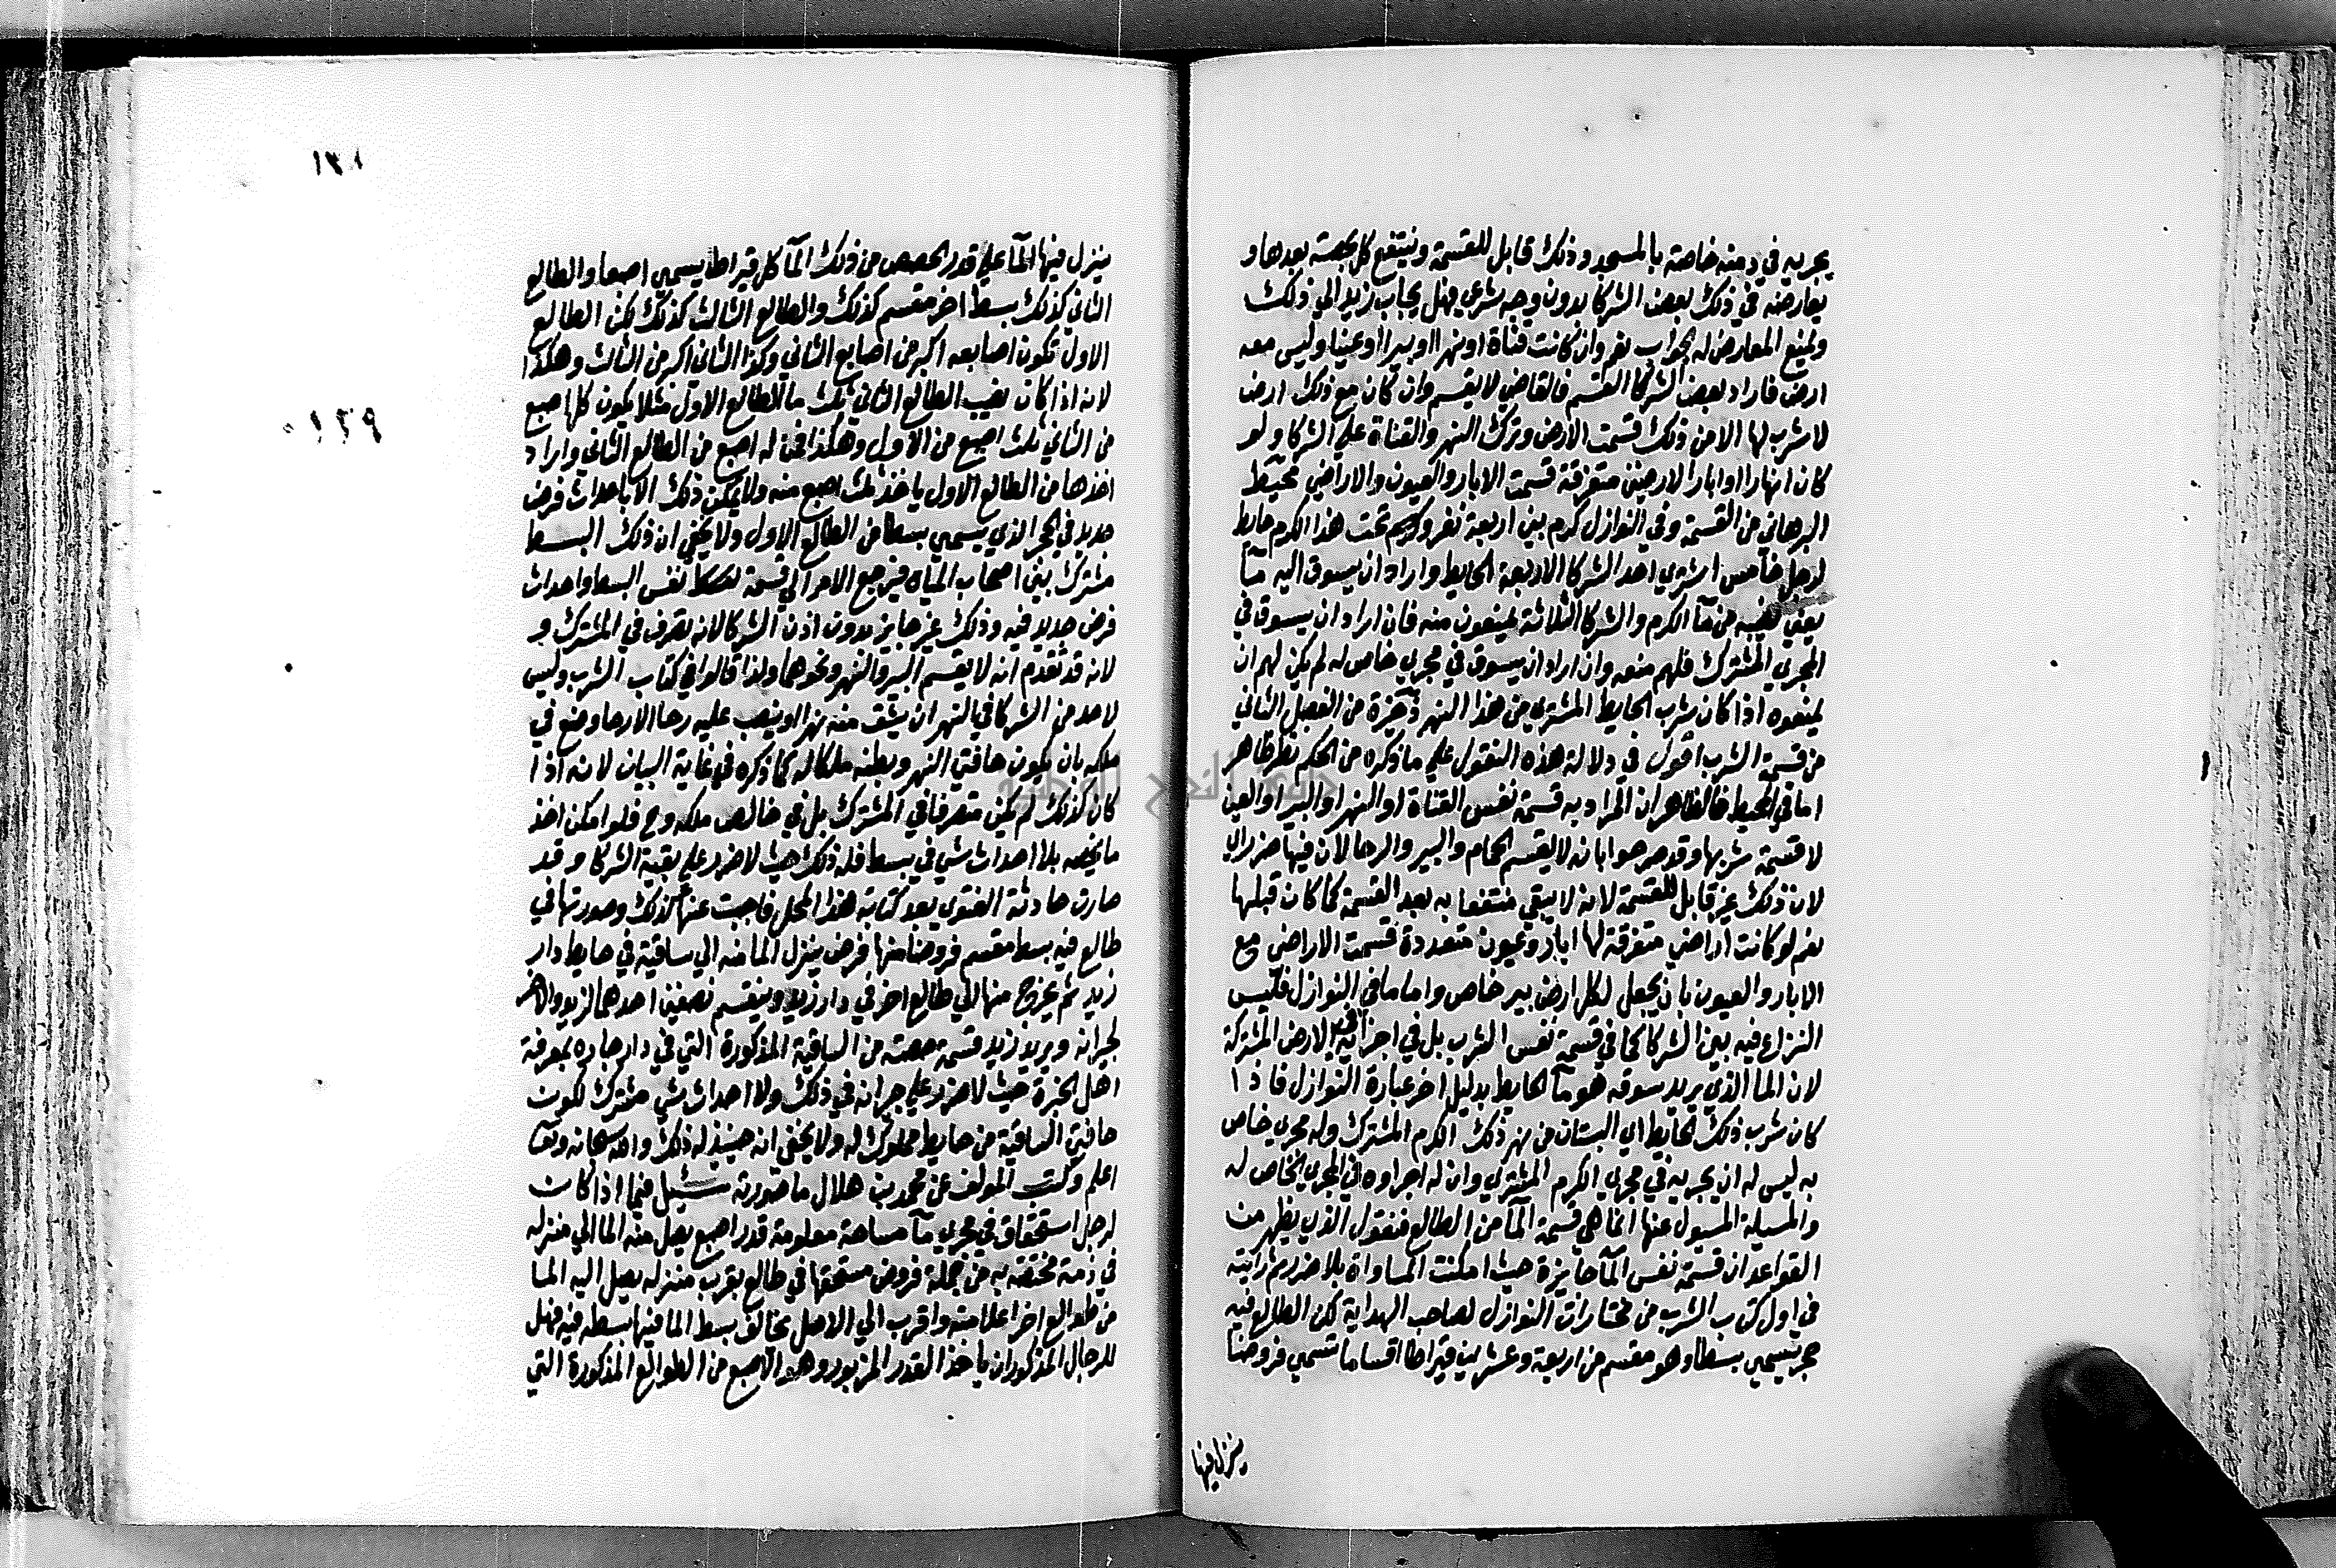 يجريه في دمنه خاصة بالمسجد وذلك قابل للقسمة وينتفع كل بحصته بعدها و
يعارضه في ذلك بعض الشركا بدون وجه شرعي فهل يجاب زيد الي ذلك
ويمنع المعارض له الجواب نعم وان كانت قناة او نهرا او بيرا او عينا وليس معه
ارض فاراد بعض الشركا القسم فالقاضي لا يقسم وان كان مع ذلك ارض
لا شرب لها الا من ذلك قسمت الارض وترك النهر والقناة علي الشركا ولو
كان انهارا او ابارا لارضين متفرقة قسمت الابار والعيون والاراضي محيط
البرهاني من القسمة وفي النوازل كرم بين اربعة نفر وكرم تحت هذا الكرم حايط
لرجل خامس اشتري احد الشركا الاربعة الحايط واراد ان يسوق اليه مآ
يعني نصيبه من مآ الكرم والشركا الثلاثة يمنعون منه فان اراد ان يسوق في
المجري المشترك فلهم منعه وان اراد ان يسوق في مجري خاص له لم يكن لهم ان
يمنعوه اذا كان شرب الحايط المشتري من هذا النهر ذخيرة من الفصل الثاني
من قسمة الشرب اقول في دلالة هذه النقول علي ما ذكره من الحكم نظر ظاهر
اما في المحيط فالظاهر ان المراد به قسمة نفس القناة او النهر او البير او العين
لا قسمة شربها وقد صرحوا بانه لا يقسم الحمام والبير والرحا لان فيها ضررا
لان ذلك غير قابل للقسمة لانه لا يبقي منتفعا به بعد القسمة كما كان قبلها
نعم لو كانت اراضي متفرقة لها ابار وعيون متعددة قسمت الاراضي مع
الابار والعيون بان يجعل لكل ارض بير خاص واما ما في النوازل فليس
النزاع فيه بين الشركا كما في قسمة نفس الشرب بل في اجرائه في الارض المشتركة
لان الما الذي يريد سوقه هو مآ الحايط بدليل اخر عبارة النوازل فاذا
كان شرب ذلك الحايط اي البستان من نهر ذلك الكرم المشترك وله مجري خاص
به ليس له ان يجريه في مجري الكرم المشتري وان له اجراوه في المجري الخاص له
والمسيلة المسيول عنها انما هي قسمة المآ من الطالع فنقول الذي يظهر من
القواعد ان قسمة نفس المآ جايزة حيث امكنت المساواة بلا ضرر ثم رايته
في اول كتاب الشرب من مختارات النوازل لصاحب الهداية لكن الطالع فيه
حجر يسمي بسطا وهو مقسم من اربعة وعشرين قيراطا اقساما تسمي فروضا
ينزل فيها
١٣١
١٢٩
ينزل فيها المآ علي قدر الحصص من ذلك المآ كل قيراط يسمي اصبعا والطالع
الثاني كذلك بسط اخر مقسم كذلك والطالع الثالث كذلك لكن الطالع
الاول تكون اصابعه اكبر من اصابع الثاني وكذا الثاني اكبر من الثالث وهكذا
لانه اذا كان نصيب الطالع الثاني ثلث ما للطالع الاول مثلا يكون كل اصبع
من الثاني ثلث اصبع من الاول وهكذا فمن له اصبع من الطالع الثاني واراد
اخذها من الطالع الاول ياخذ ثلث اصبع منه ولا يمكن ذلك الا باحداث فرض
جديد في الحجر الذي يسمي بسطا من الطالع الاول ولا يخفي ان ذلك البسط
مشترك بين اصحاب المياه فيرجع الامر الي قسمة نفس البسط واحداث
فرض جديد فيه وذلك غير جايز بدون اذن الشركا لانه تصرف في المشترك و
لانه قد تقدم انه لا يقسم البير والنهر ونحوهما ولذا قالوا في كتاب الشرب وليس
لاحد من الشركا في النهر ان يشق منه نهرا او ينصب عليه رحا الا رحا وضع في
ملكه بان يكون حافتي النهر وبطنه ملكا له كما ذكره في غاية البيان لانه اذا
كان كذلك لم يكن متصرفا في المشترك بل في خالص ملكه وح فلو امكن اخذ
ما يخصه بلا احداث شي في بسط فله ذلك حيث لا ضرر علي بقية الشركا وقد
صارت حادثة الفتوي بعد كتابة هذا المحل فاجبت عنها كذلك وصورتها في
طالع فيه بسط مقسم فروضا منها فرض ينزل الما منه الي ساقية في حايط دار
زيد ثم يخرج منها الي طالع اخر في دار زيد وينقسم نصفين احدهما لزيد والاخر
لجيرانه ويريد زيد قسمة حصته من الساقية المذكورة التي في دار جاره بمعرفة
اهل الخبرة حيث لا ضرر علي جيرانه في ذلك ولا احداث شي مشترك لكون
حافتي الساقية من حايط مملوك له ولا يخفي ان حينيذ له ذلك والله سبحانه وتعا
اعلم وكتب المولف عن محمد بن هلال ما صورته سيل فيما اذا كان
لرجل استحقاق في مجري مآ مساحة معلومة قدر اصبع يصل منه الما الي منزله
في ذمة مختصة به من جملة فروض مستحقها في طالع بقرب منزله يصل اليه الما
من طوالع اخر اعلا منه واقرب الي الاصل يخالف بسط الما فيها بسطه فيه فهل
للرجال المذكور ان ياخذ القدر المزبور وهو الاصبع من الطوالع المذكورة التي